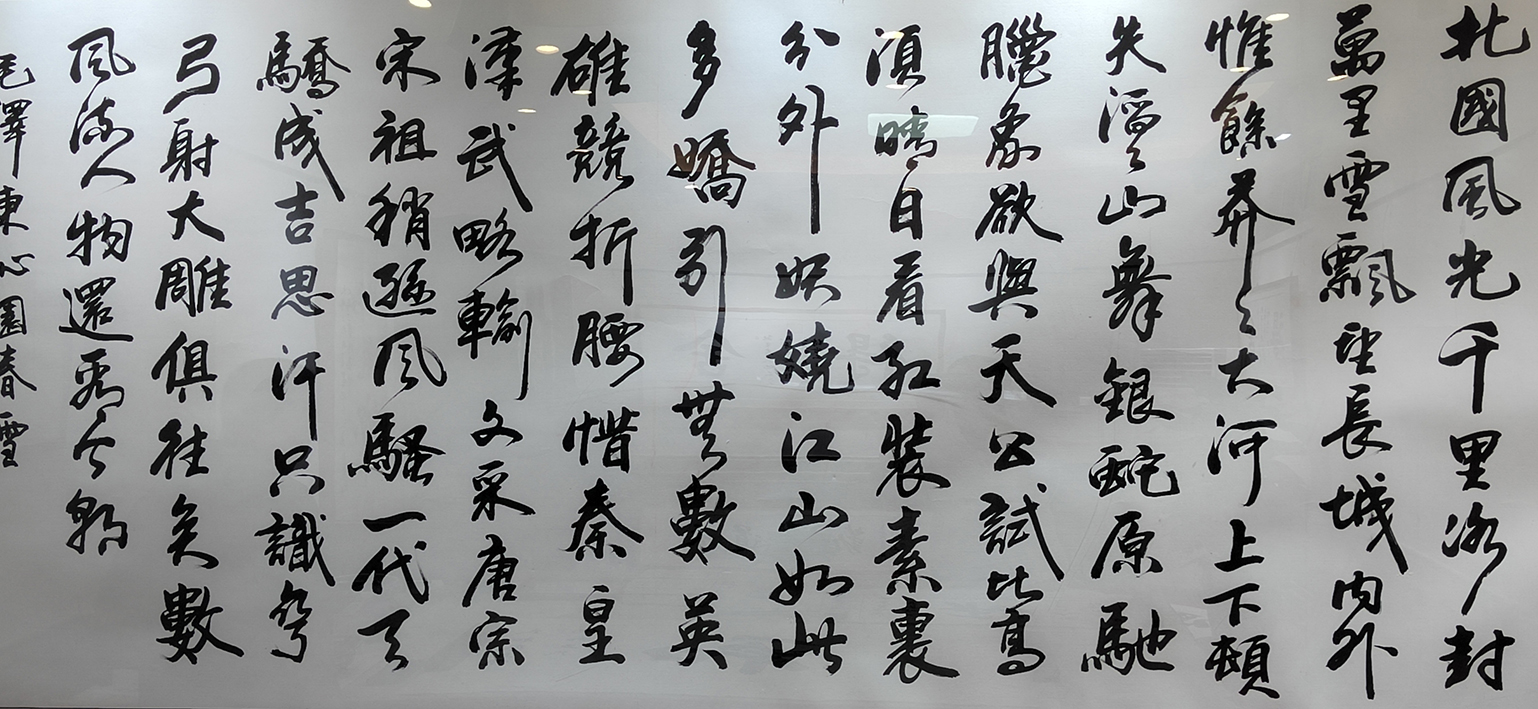 北國風光千里冰封
萬里雪飄望長城內外
惟餘莽々大河上下頓
失滔々山舞銀蛇原馳
臘象欲與天公試比高
須晴日看紅裝素裹
分外妖嬈江山如此
多嬌引無數英
雄競折腰惜秦皇
漢武略輸文采唐宗
宋祖稍遜風騷一代天
驕成吉思汗只識彎
弓射大雕俱往矣數
風流人物還看今朝
毛澤東沁園春雪